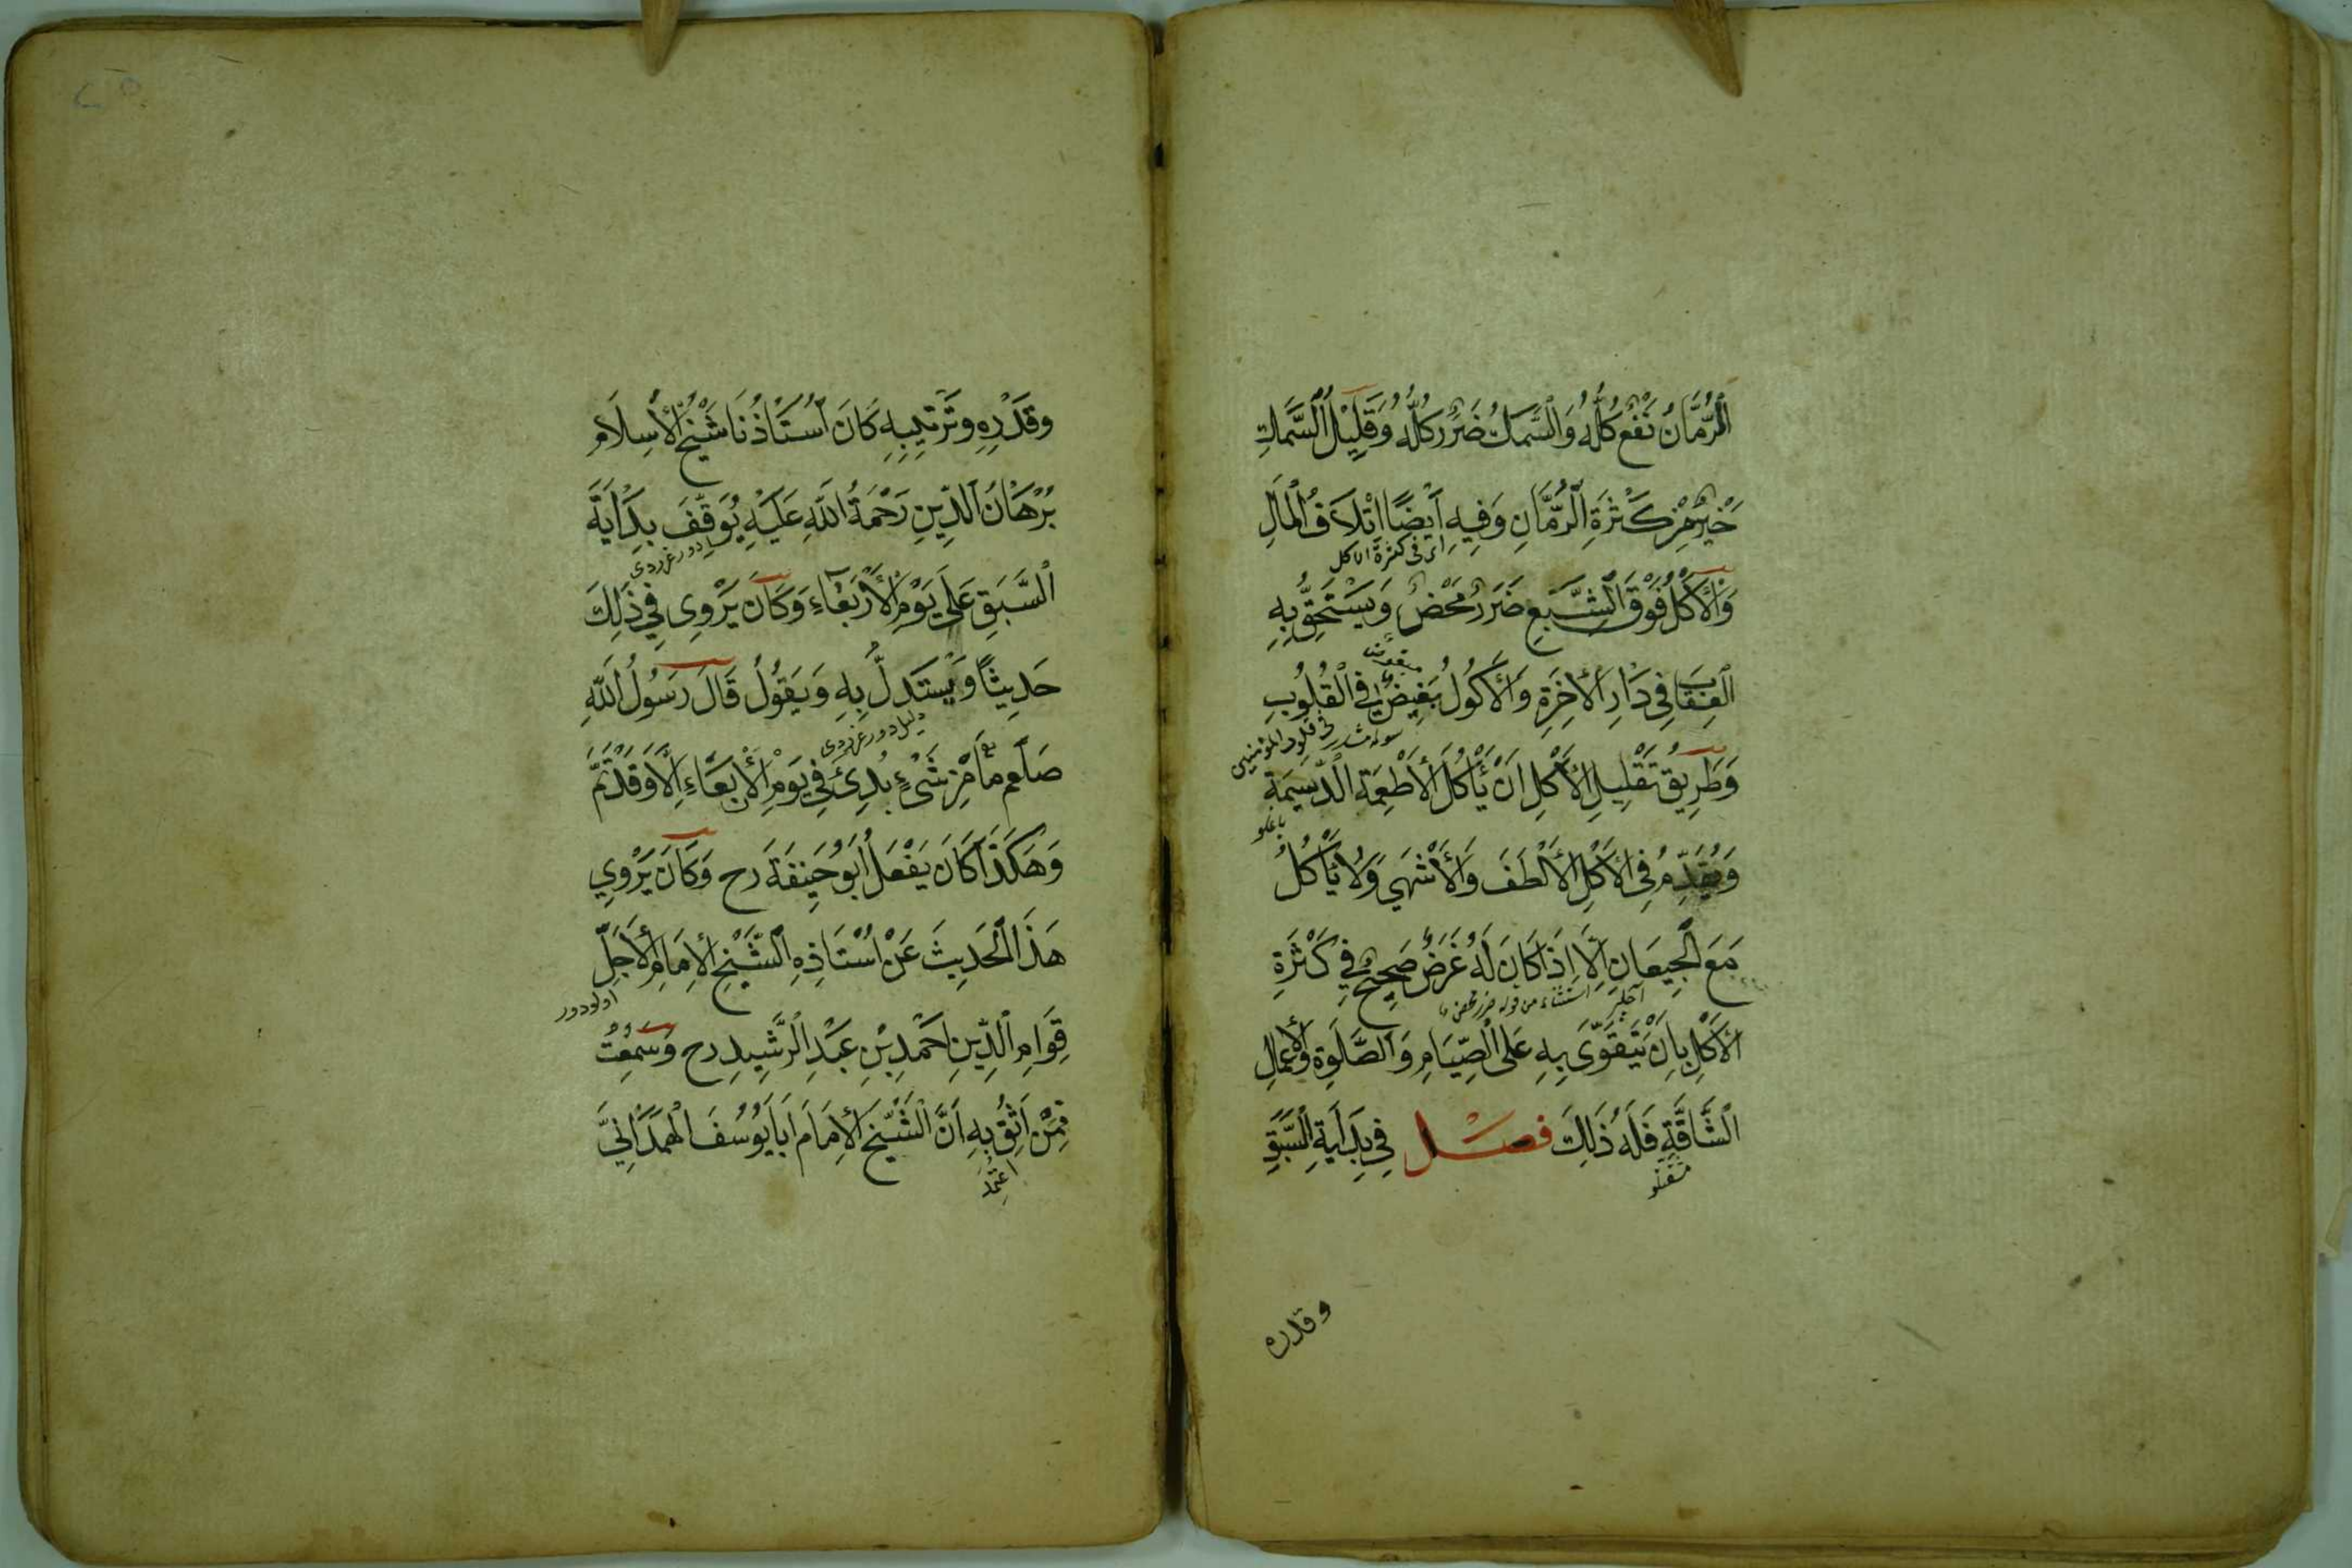 اَلرُّمَّانُ نَفْعٌ كُلُّهُ وَالسَّمَكُ ضَرَرٌ كُلُّهُ وَقَلِيلُ السَّمَكِ
خَيْرٌ مِنْ كَثْرَةِ الرُّمَّانِ وَفِيهِ اَيْضًا اِتْلَافُ الْمَالِ
اى فى كثرة الاكل
وَالْاَكْلُ فَوْقَ الشِّبَعِ ضَرَرٌ مَحْضٌ وَيَسْتَحِقُّ بِهِ
الْعِقَابَ فِي دَارِ الْاٰخِرَةِ وَالْاَكُولُ بَغِيضٌ فِي الْقُلُوبِ
فى قلوب المؤمنين
وَطَرِيقُ تَقْلِيلِ الْاَكْلِ اَنْ يَأْكُلَ الْاَطْعِمَةَ الدَّسِيمَةَ
ياغلو
وَيُقَدِّمُ فِي الْاَكْلِ الْاَلْطَفَ وَالْاَشْهَى وَلَا يَأْكُلُ
مَعَ الْجِيعَانِ اِلَّا اِذَا كَانَ لَهُ غَرَضٌ صَحِيحٌ فِي كَثْرَةِ
استثناء من قوله ضرر محض
الْاَكْلِ بِاَنْ يَتَقَوَّى بِهِ عَلَى الصِّيَامِ وَالصَّلٰوةِ وَالْاَعْمَالِ
الشَّاقَّةِ فَلَهُ ذٰلِكَ فصل فِي بِدَايَةِ السَّبَقِ
وقدره
وَقَدْرِهِ وَتَرْتِيبِهِ كَانَ اُسْتَاذُنَا شَيْخُ الْاِسْلَامِ
بُرْهَانُ الدِّينِ رَحْمَةُ اللّٰهِ عَلَيْهِ يُوَقِّفُ بِدَايَةَ
السَّبَقِ عَلَى يَوْمِ الْاَرْبَعَاءِ وَكَانَ يَرْوِي فِي ذٰلِكَ
حَدِيثًا وَيَسْتَدِلُّ بِهِ وَيَقُولُ قَالَ رَسُولُ اللّٰهِ
صَلَّعم مَا مِنْ شَيْءٍ بُدِئَ فِي يَوْمِ الْاَرْبَعَاءِ اِلَّا وَقَدْ تَمَّ
وَهٰكَذَا كَانَ يَفْعَلُ اَبُو حَنِيفَةَ رح وَكَانَ يَرْوِي
هٰذَا الْحَدِيثَ عَنْ اُسْتَاذِهِ الشَّيْخِ الْاِمَامِ الْاَجَلِّ
اولودور
قِوَامِ الدِّينِ اَحْمَدِ بْنِ عَبْدِ الرَّشِيدِ رح وَسَمِعْتُ
مِمَّنْ اَثِقُ بِهِ اَنَّ الشَّيْخَ الْاِمَامَ اَبَا يُوسُفَ الْهَمَدَانِيَّ
اعتمد